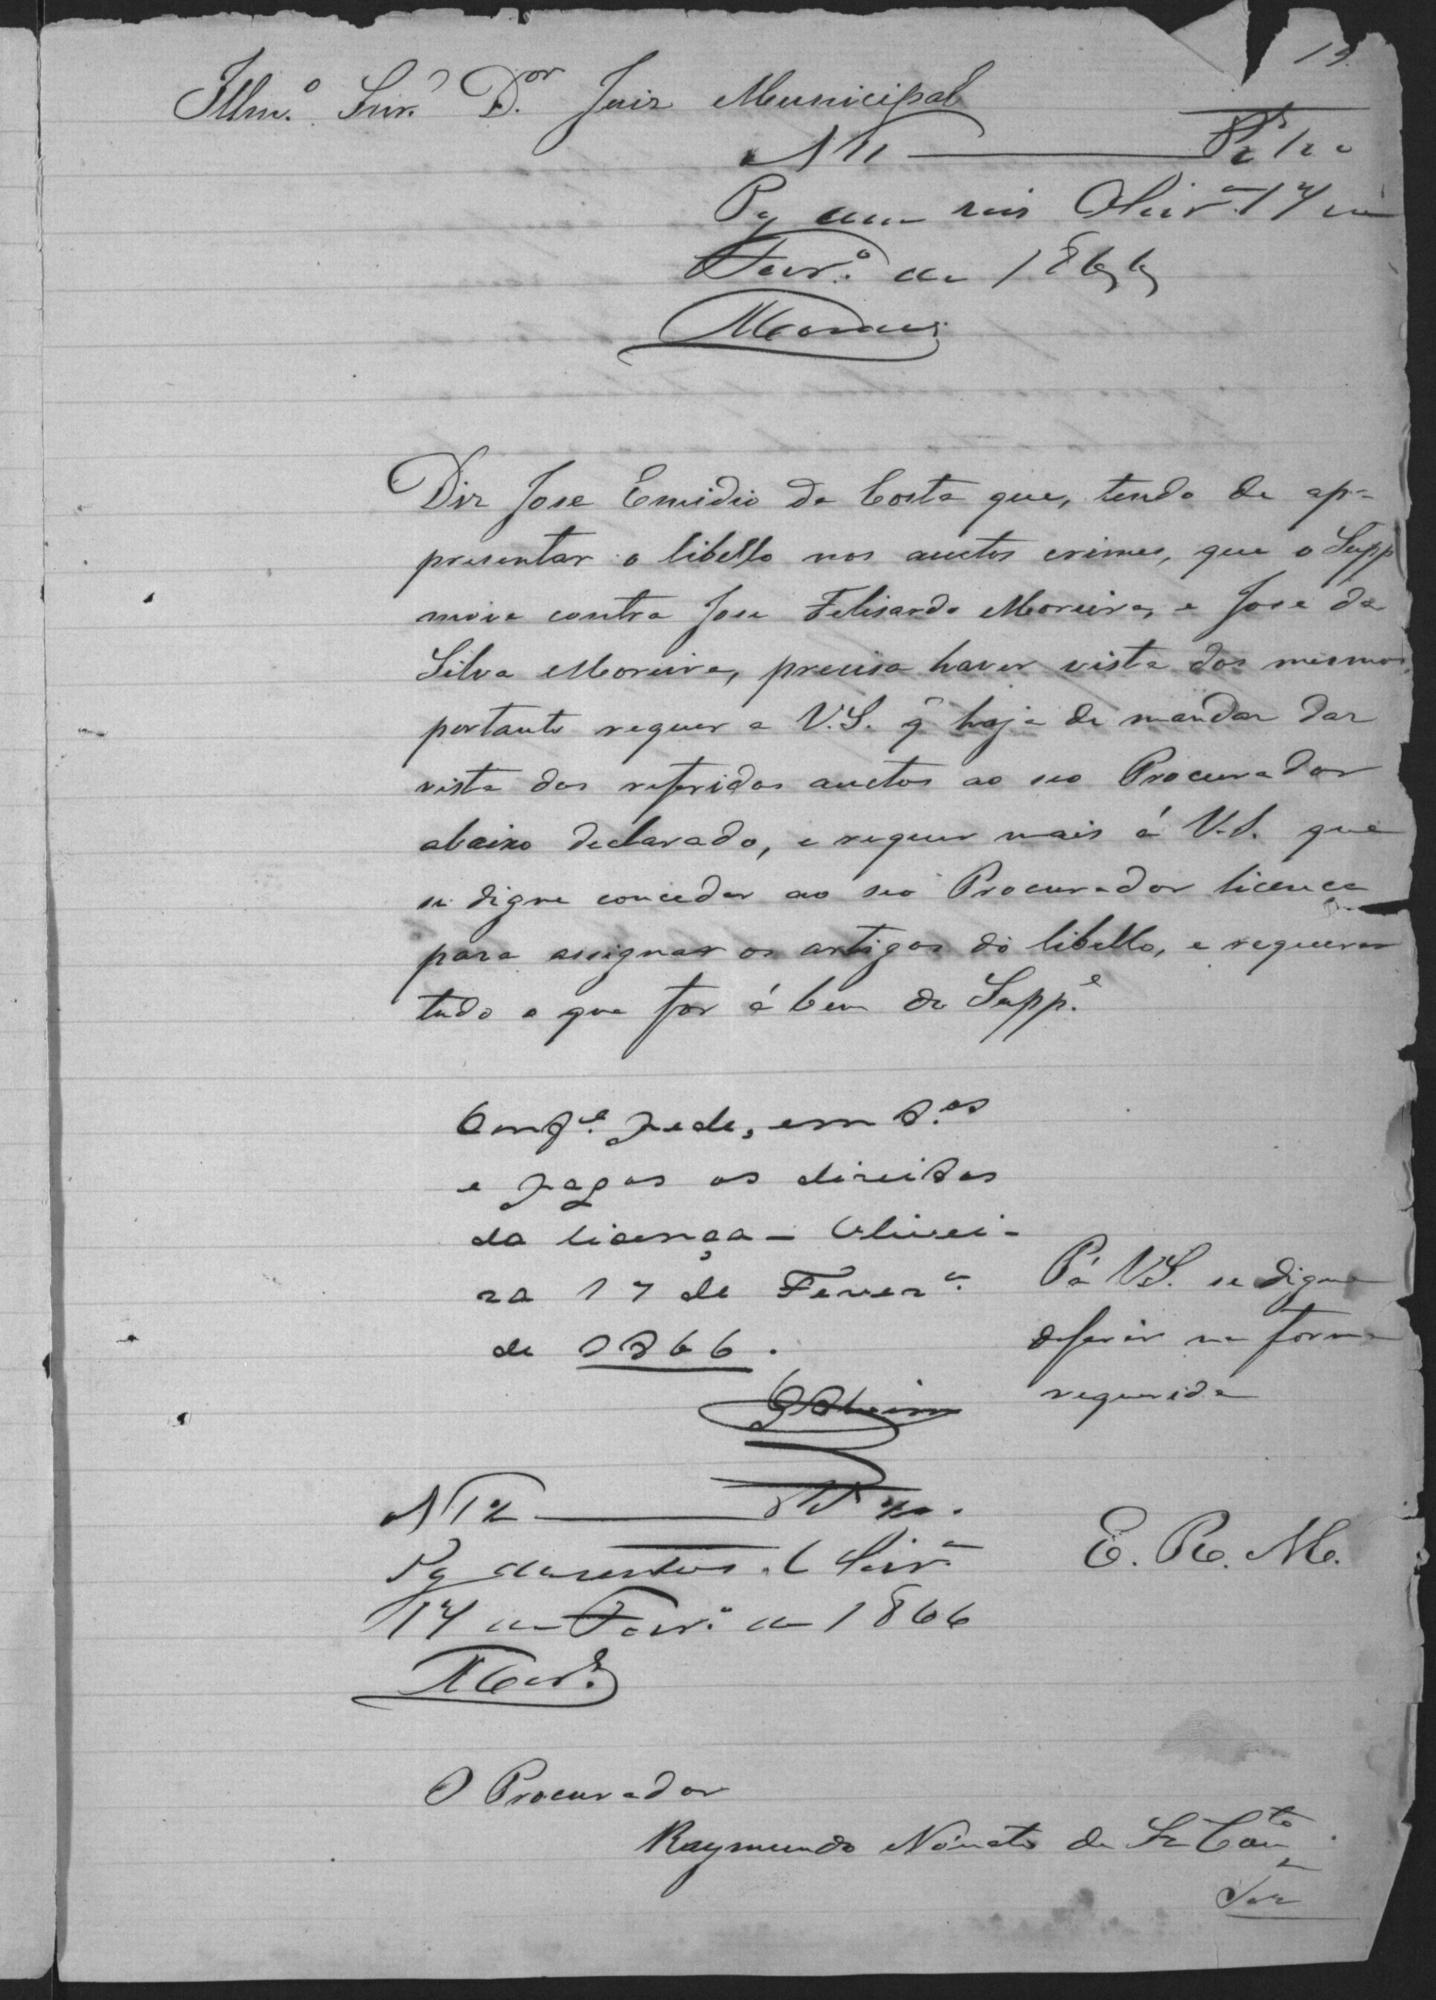 19
Illm.º Snr.' D.or Juiz Municipal
N 11
Pg
Fevr.º de 1866
Moraes
Diz Jose Emidio da Costa que, tendo de ap-
presentar o libello nos auctos crimes, que o Supp
move contra Jose Felisardo Moreira, e Jose da
Silva Moreira, precisa haver vista dos mesmos
portanto requer a V.S. q̃ haja de mandar dar
vista dos referidos auctos ao seo Procurador
abaixo declarado, e requer mais á V.S. que
se digne conceder ao seo Procurador licença
para assignar os artigos do libello, e requerer
tudo o que for á bem do Supp.e
pede, em
e pagos os direitos
da licença – Olivei-
ra 17 de Fever.º
de 1866.
P.a V.S. se digne
deferir na forma
requerida
N 12
Pg duzentos. Oliv.ª
17 de Fevr.º de 1866
E. R. M.
O Procurador
Raymundo Nonato de